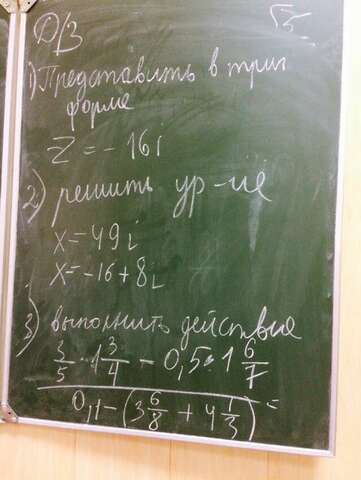 Д/З
√5
1) Представить в триг
форме
Z = - 16i
2) решить ур-ие
x = 49i
x = -16 + 8i
3) выполнить действие
3/5 · 1 3/4 - 0,5 · 1 6/7
0,1 - (3 6/8 + 4 1/3) =